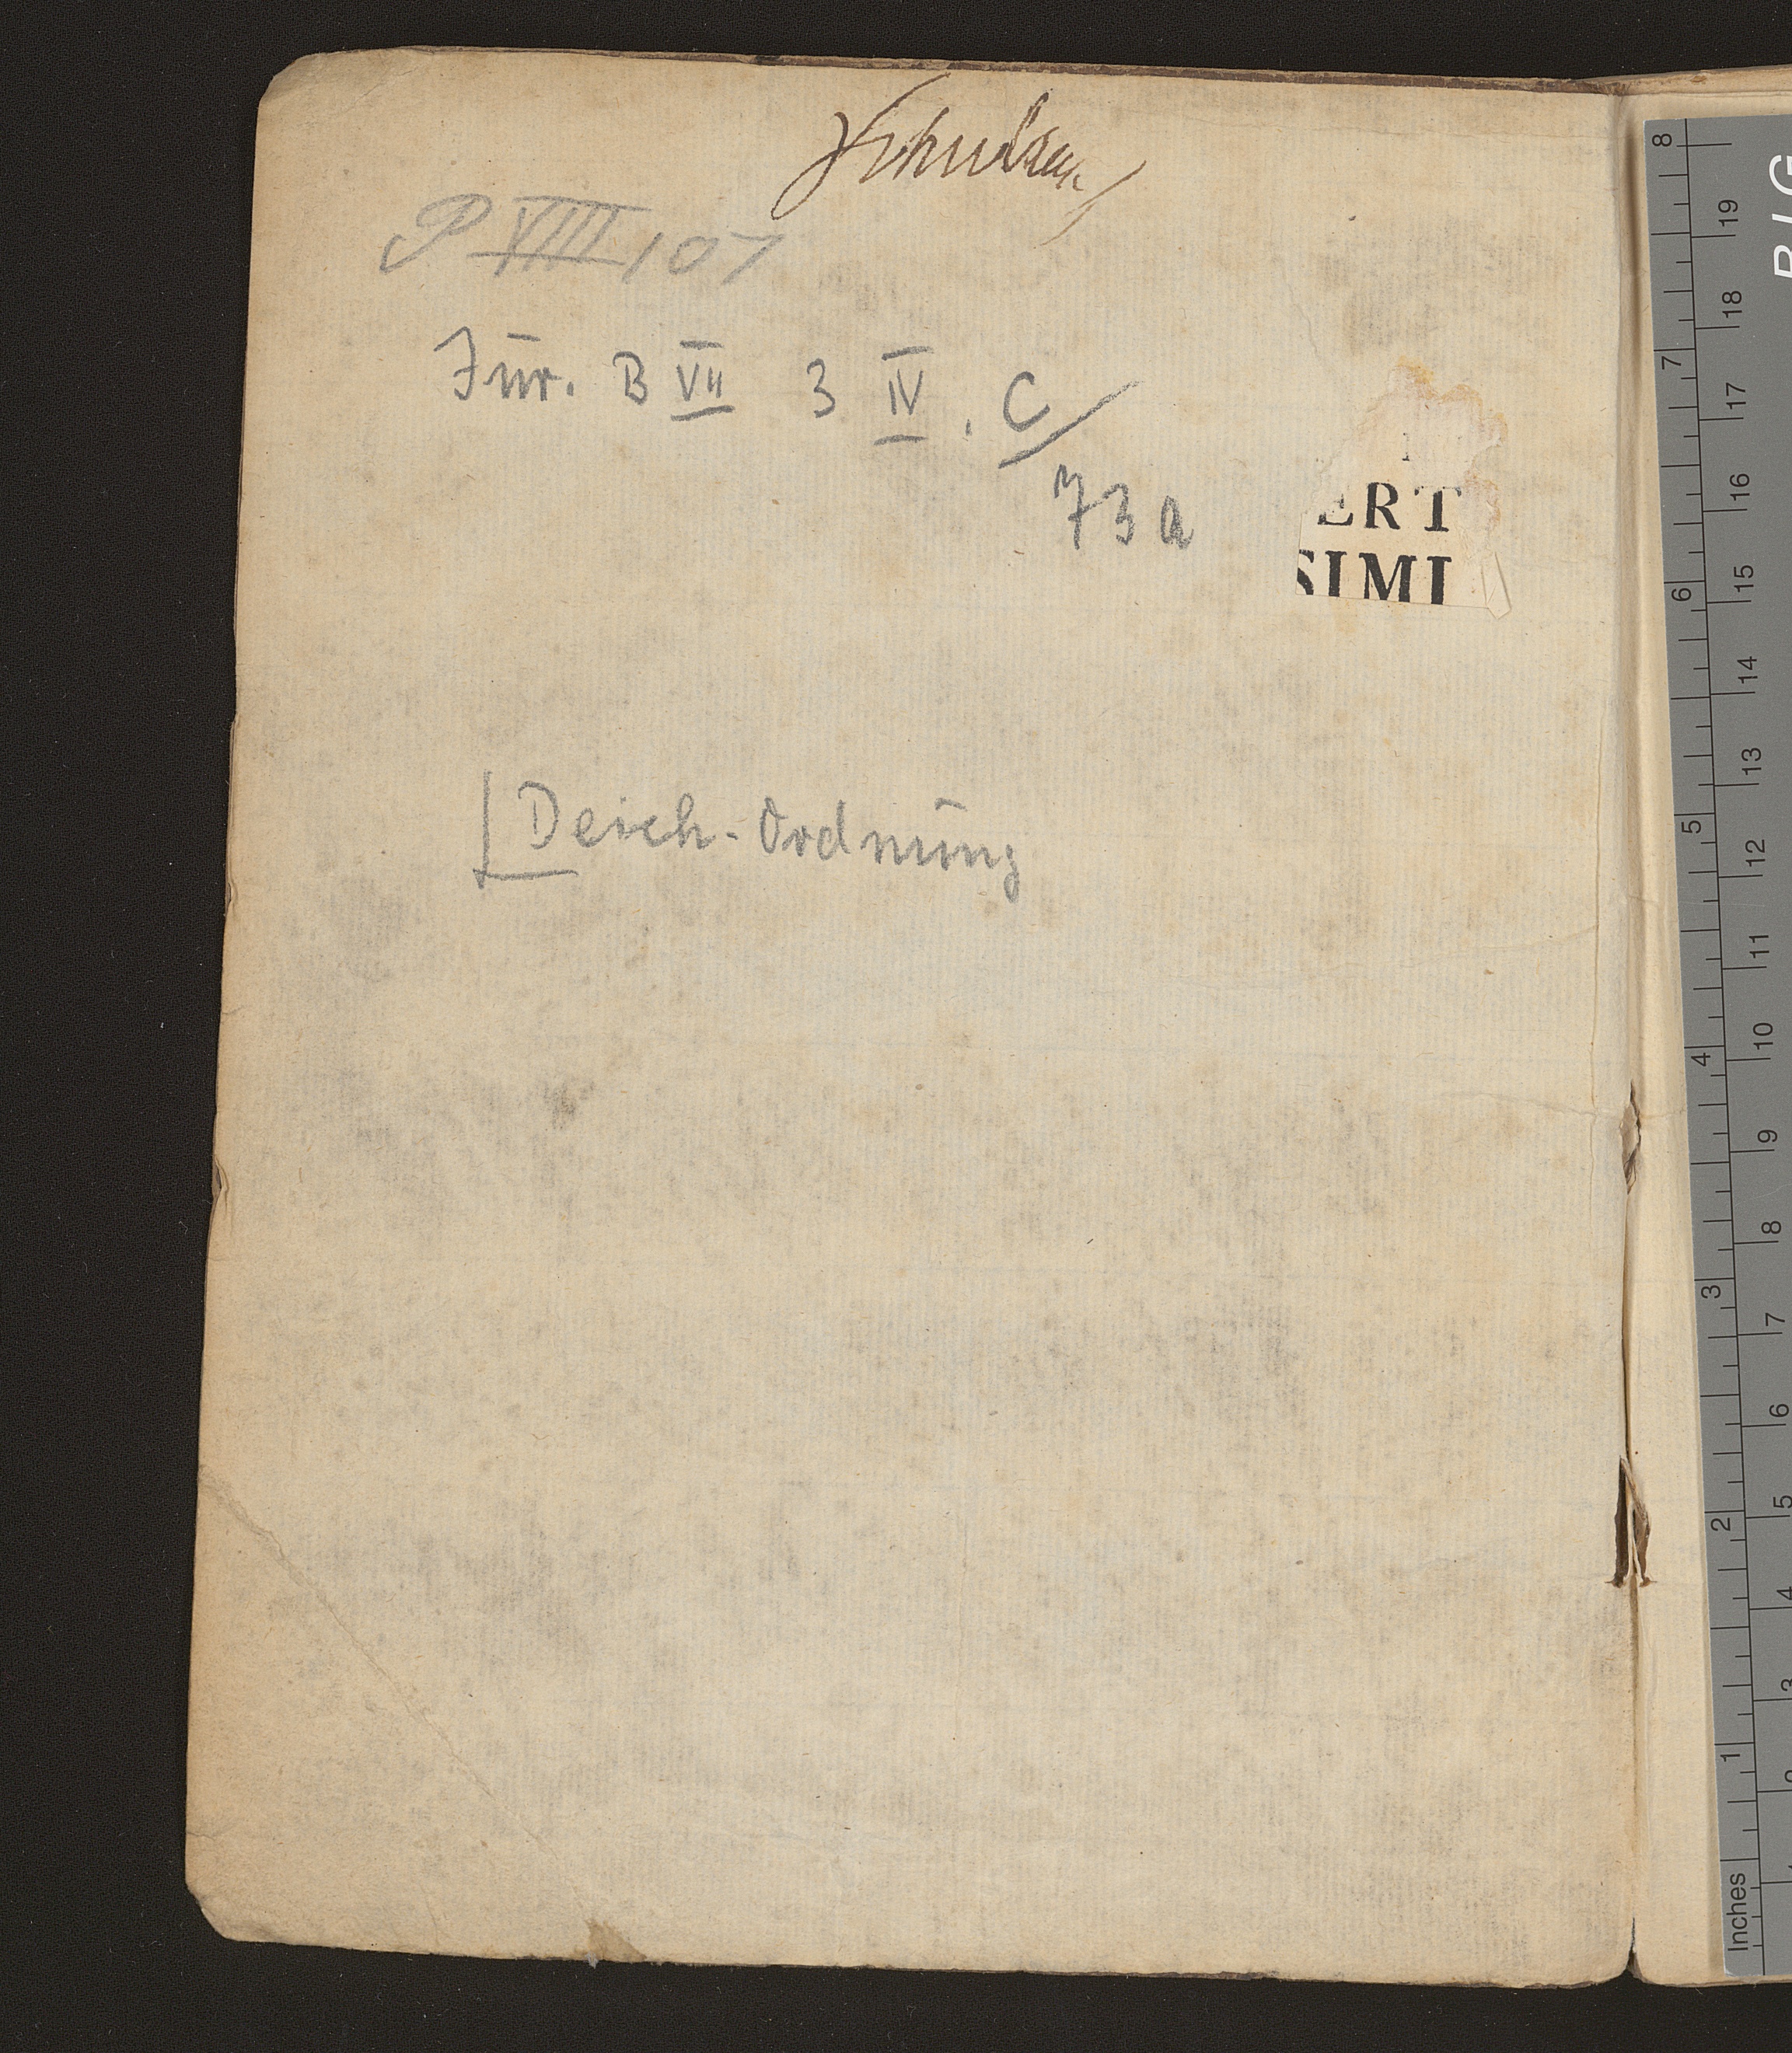 P VIII 107
Jur. B VII 3 IV. C/
73 a
ERT
SIMI
Deich-Ordnung
8
7
6
5
4
3
2
1
Inches
19
18
17
16
15
14
13
12
11
10
9
8
7
6
5
4
3
2